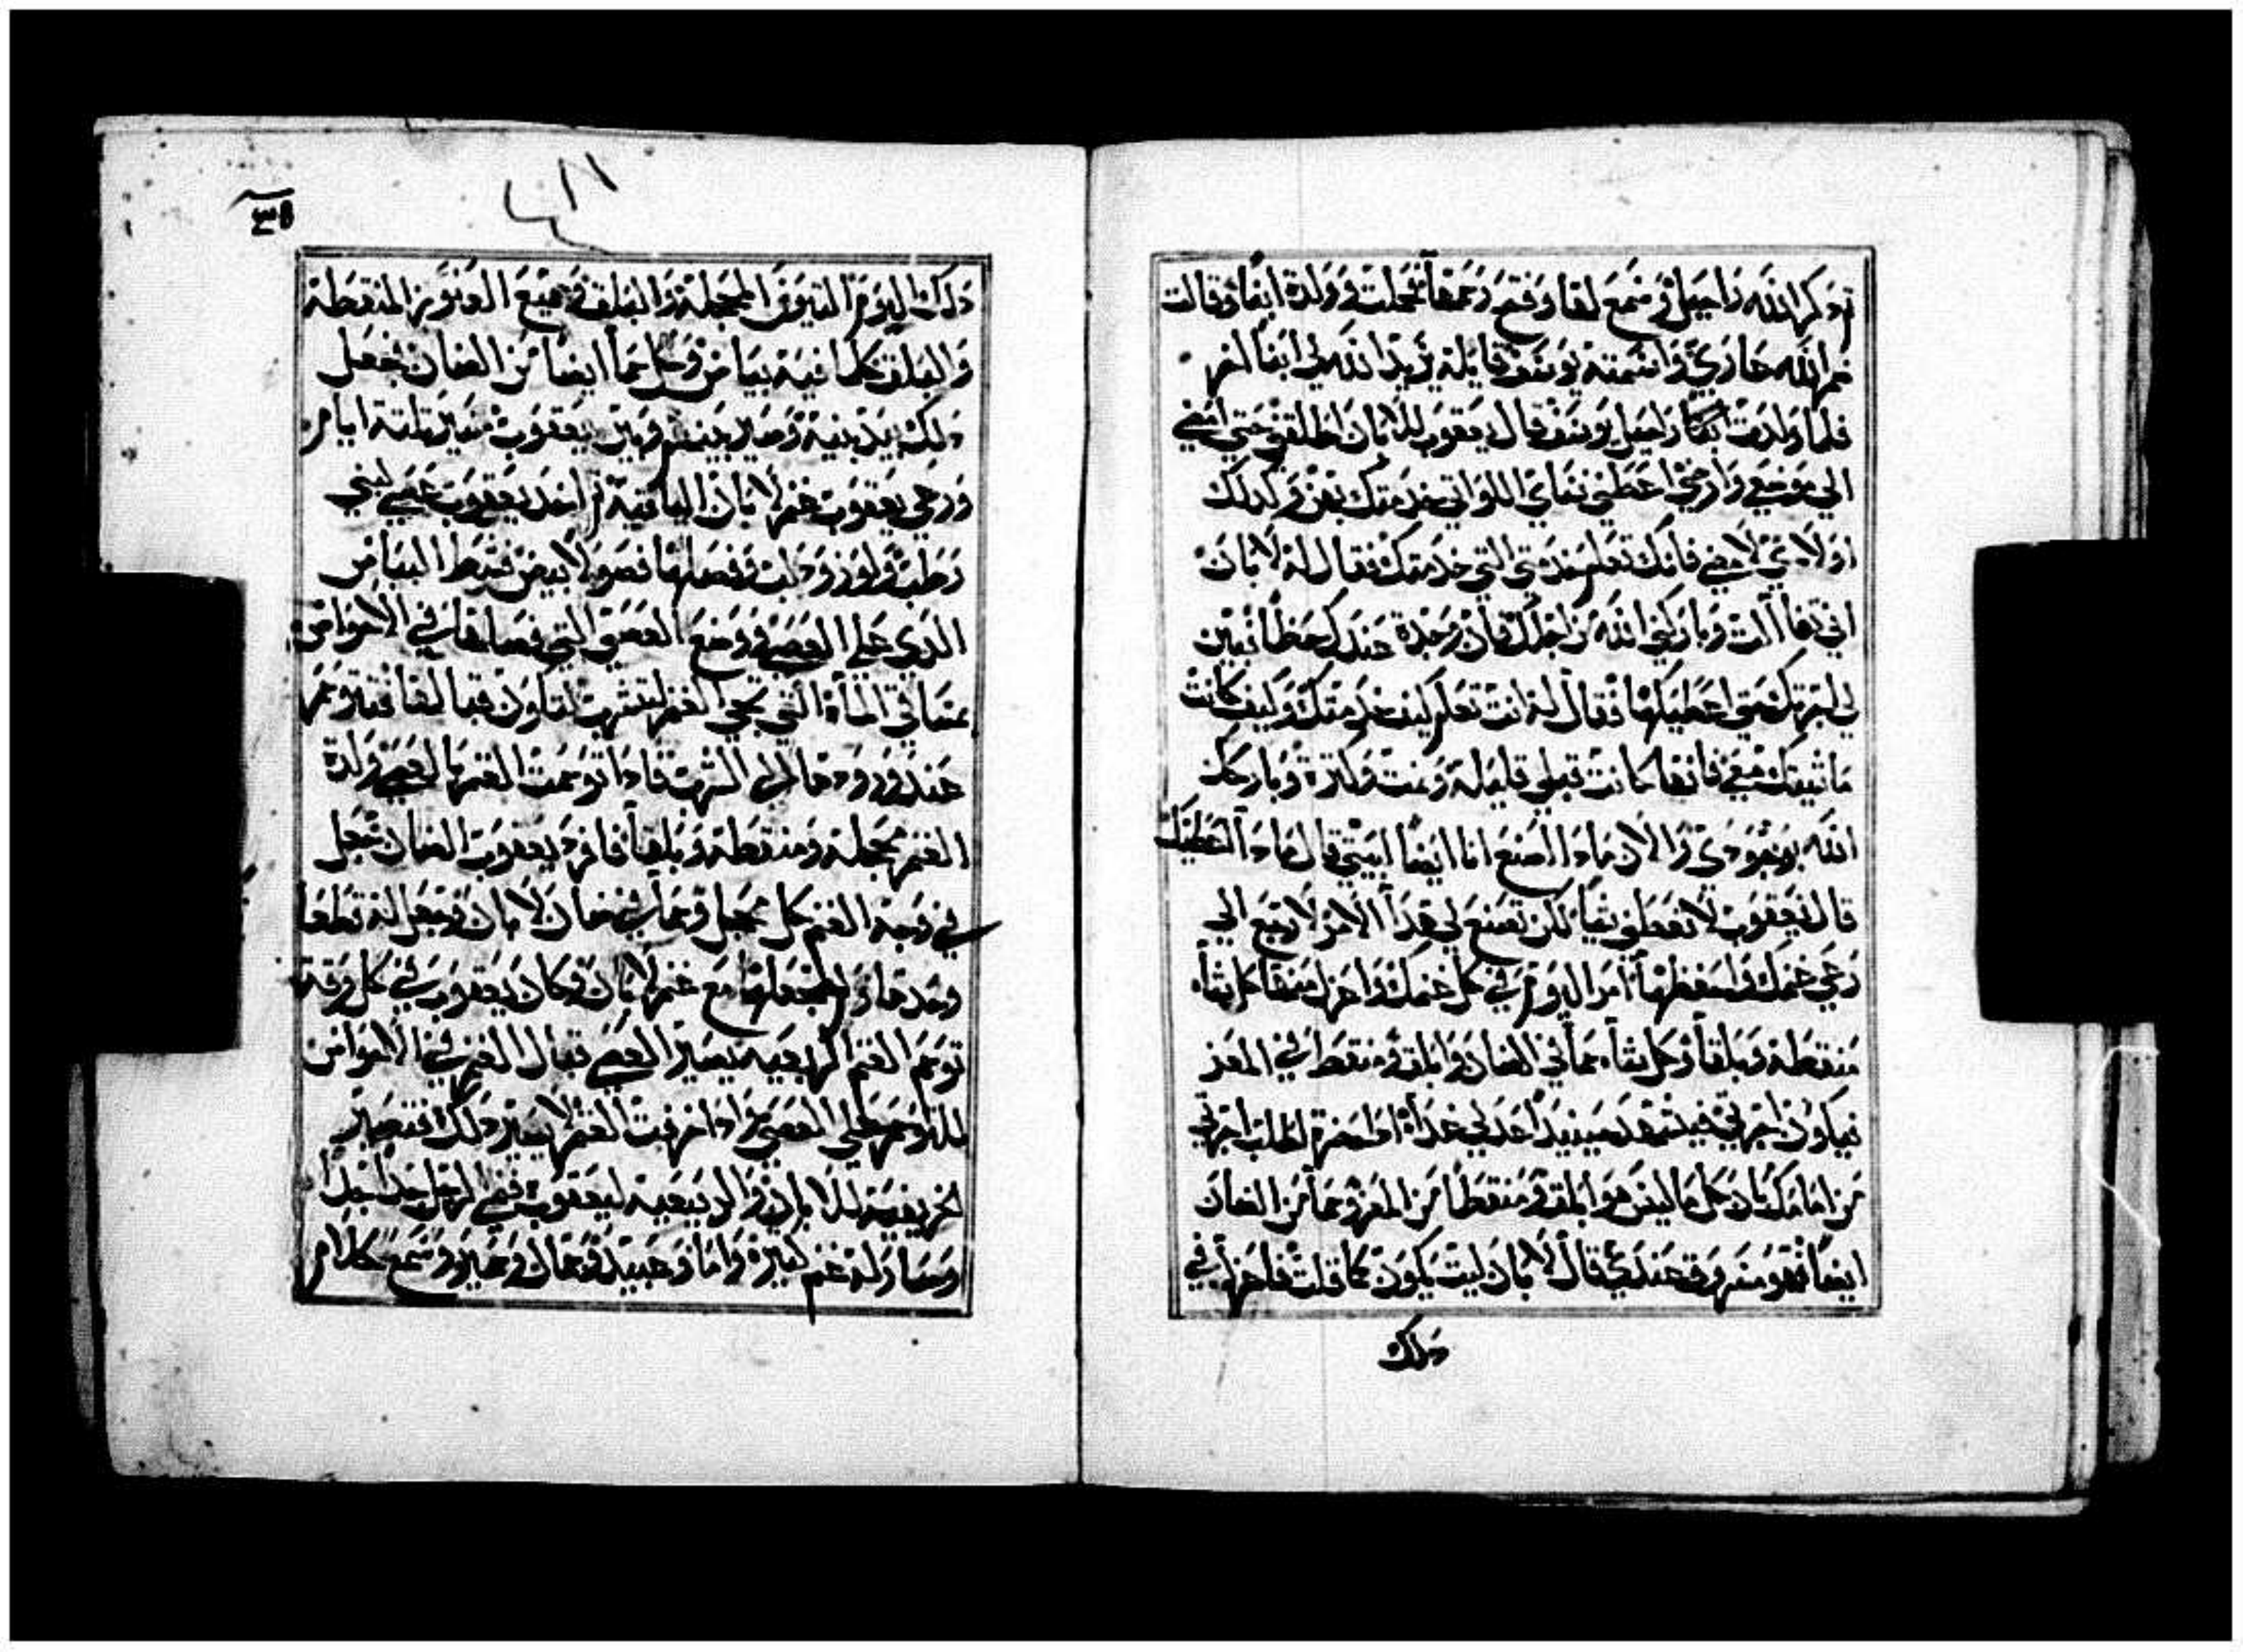 ثم ذكر الله راحيل وسمع لها وفتح رحمها فحملت وولدة ابناً وقالت
الله عاري واسمته يوسف قايلة يزيد الله لي ابناً اخر
فلما ولدت راحيل يوسف قال يعقوب للابان اطلقني حتي امضي
الي موضعي وارضي اعطني نساي اللواتي خدمتك بهن وكدلك
اولادي لامضي فانك تعلم خدمتي التي خدمتك فقال له لابان
اني تفاالت وباركني الله من اجلك فان وجدة عندك حظاً فبين
لي اجرتك حتي اعطيكها فقال له انت تعلم كيف خدمتك وكيف كانت
ماشيتك معي فانها كانت قبلي قليلة ونمت وكترة وباركك
الله بوجودي والان مادا اصنع انا ايضاً لبيتي قال مادا اعطيك
قال يعقوب لا تعطني شياً لكن تصنع لي هدا الامر لارجع الي
رعي غنمك واحفظها امر اليوم في كل غنمك واعزل منها كل شاه
منقطة وبلقا وكل شاه حما في الضان وابلق ومنقط في المعز
فيكون اجرتي فيشهد حينيد عدلي غداً ادا حضرة لطلب اجرتي
من امامك بان كل ما ليس هو ابلق ومنقطاً من المعز وحما من الضان
ايضاً فهو مسروق عندي قال لابان ليت يكون كما قلت فاعزل في
دلك
٣٥
دلك اليوم التيوس المحجلة والبلق وجميع العنوز المنقطة
والبلق كلما فيه بياض وكل حما ايضاً من الضان فجعل
دلك بيد بنيه وصير بينهم وبين يعقوب مسير تلتة ايام
ورعي يعقوب غنم لابان الباقية ثم اخد يعقوب عصي لبني
رطب ولوز ودلب وفصلها فصولا بيض فشط البياض
الدي علي العصي ووضع العصي التي فصلها في الاحواض
مساقي الماء التي تجي الغنم لتشرب لتكون قبالها فتتوحم
عند ورودها الي الشرب فادا توحمت الغنم بالعصي ولدة
الغنم محجلة ومنقطة وبلقاً فافرد يعقوب الضان وجعل
في وجه الغنم كل محجل وحما في ضان لابان وجعل له قطعا
وحدها ولم يجعلها مع غنم لابان وكان يعقوب في كل وقت
توحم الغنم الربعيه يصير العصي قبال الغنم في الاحواض
للتوحم علي العصي وادا خرفت الغنم لا يصير دلك فتصير
الخريفية للابان والربيعية ليعقوب فنمي الرجل جداً جداً
وصار له غنم كتيرة واما وعبيد وجمال وحمير وسمع كلام